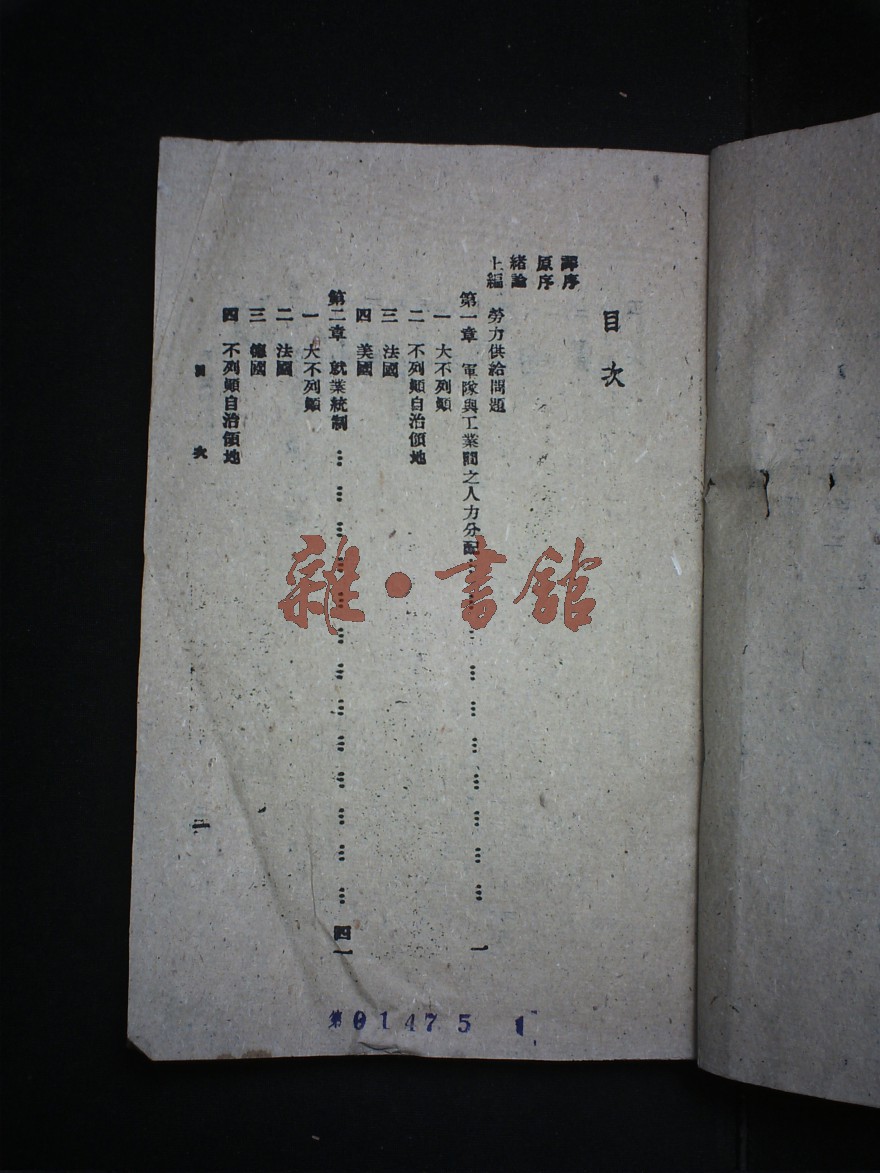 目次
譯序
原序
緒論
上編 勞力供給問題
第一章 軍隊與工業間之人力分配………………………一
一 大不列顛
二 不列顛自治領地
三 法國
四 美國
第二章 就業統制………………………四一
一 大不列顛
二 法國
三 德國
四 不列顛自治領地
目次
雜·書館
第01475 1